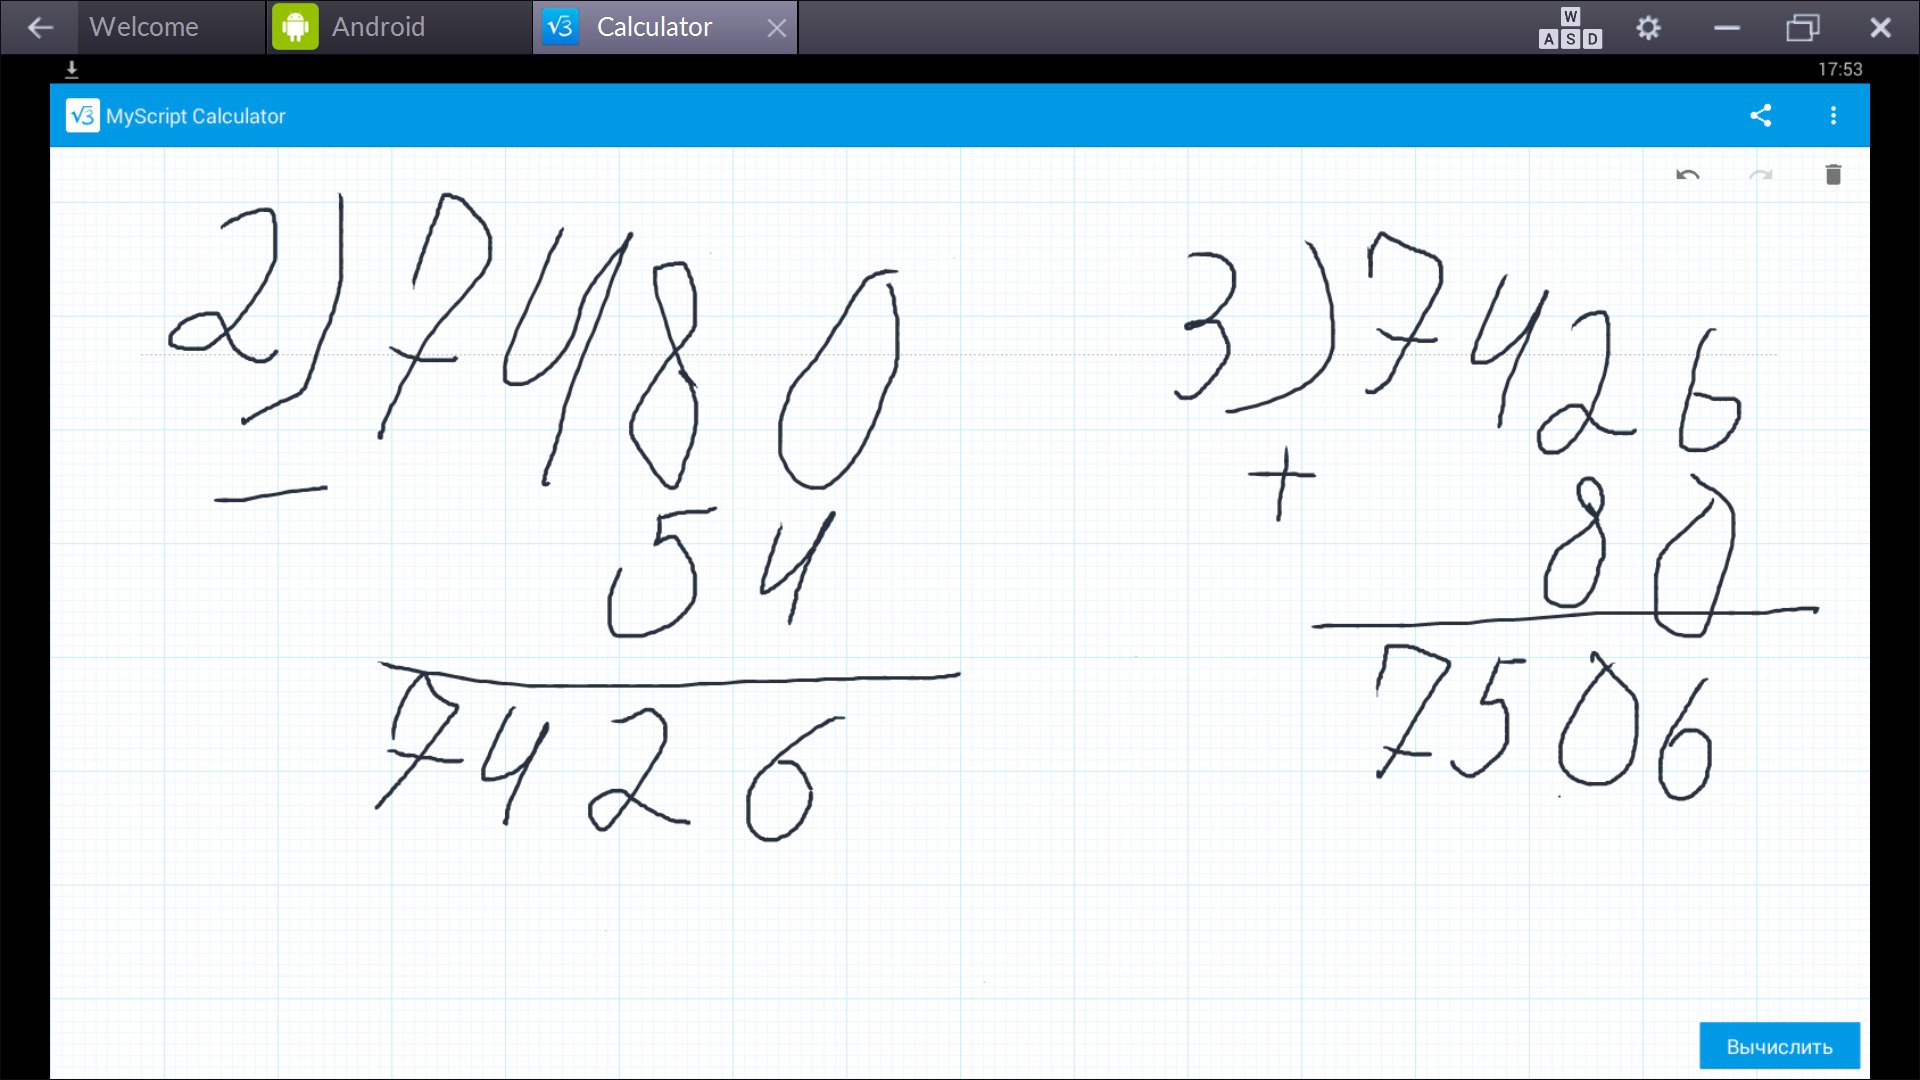 Welcome
Android
√3 Calculator
W
A S D
17:53
√3 MyScript Calculator
2) 7480
−
54
7426
3) 7426
+
80
7506
Вычислить